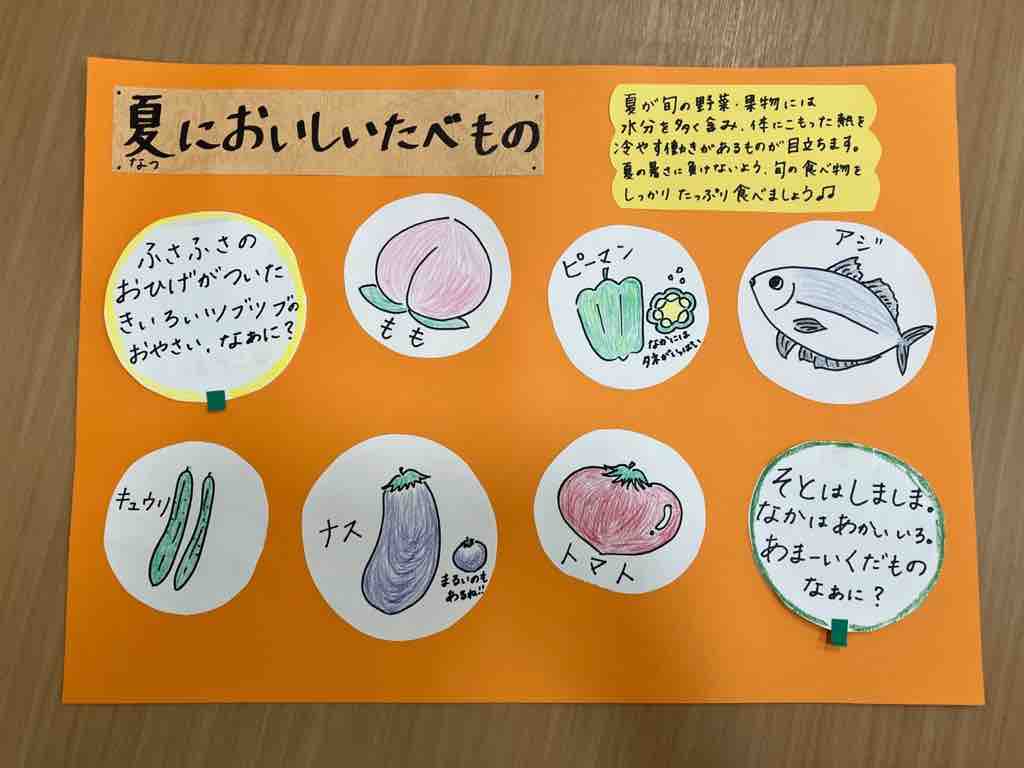 夏においしいたべもの
なつ
夏が旬の野菜・果物には
水分を多く含み、体にこもった熱を
冷やす働きがあるものが目立ちます。
夏の暑さに負けないよう、旬の食べ物を
しっかりたっぷり食べましょう♫
ふさふさの
おひげがついた
きいろいツブツブの
おやさい、なぁに?
もも
ピーマン
なかには
タネがいっぱい
アジ
キュウリ
ナス
まるいのも
あるね!!
トマト
そとはしましま。
なかはあかいいろ。
あまーいくだもの
なぁに?